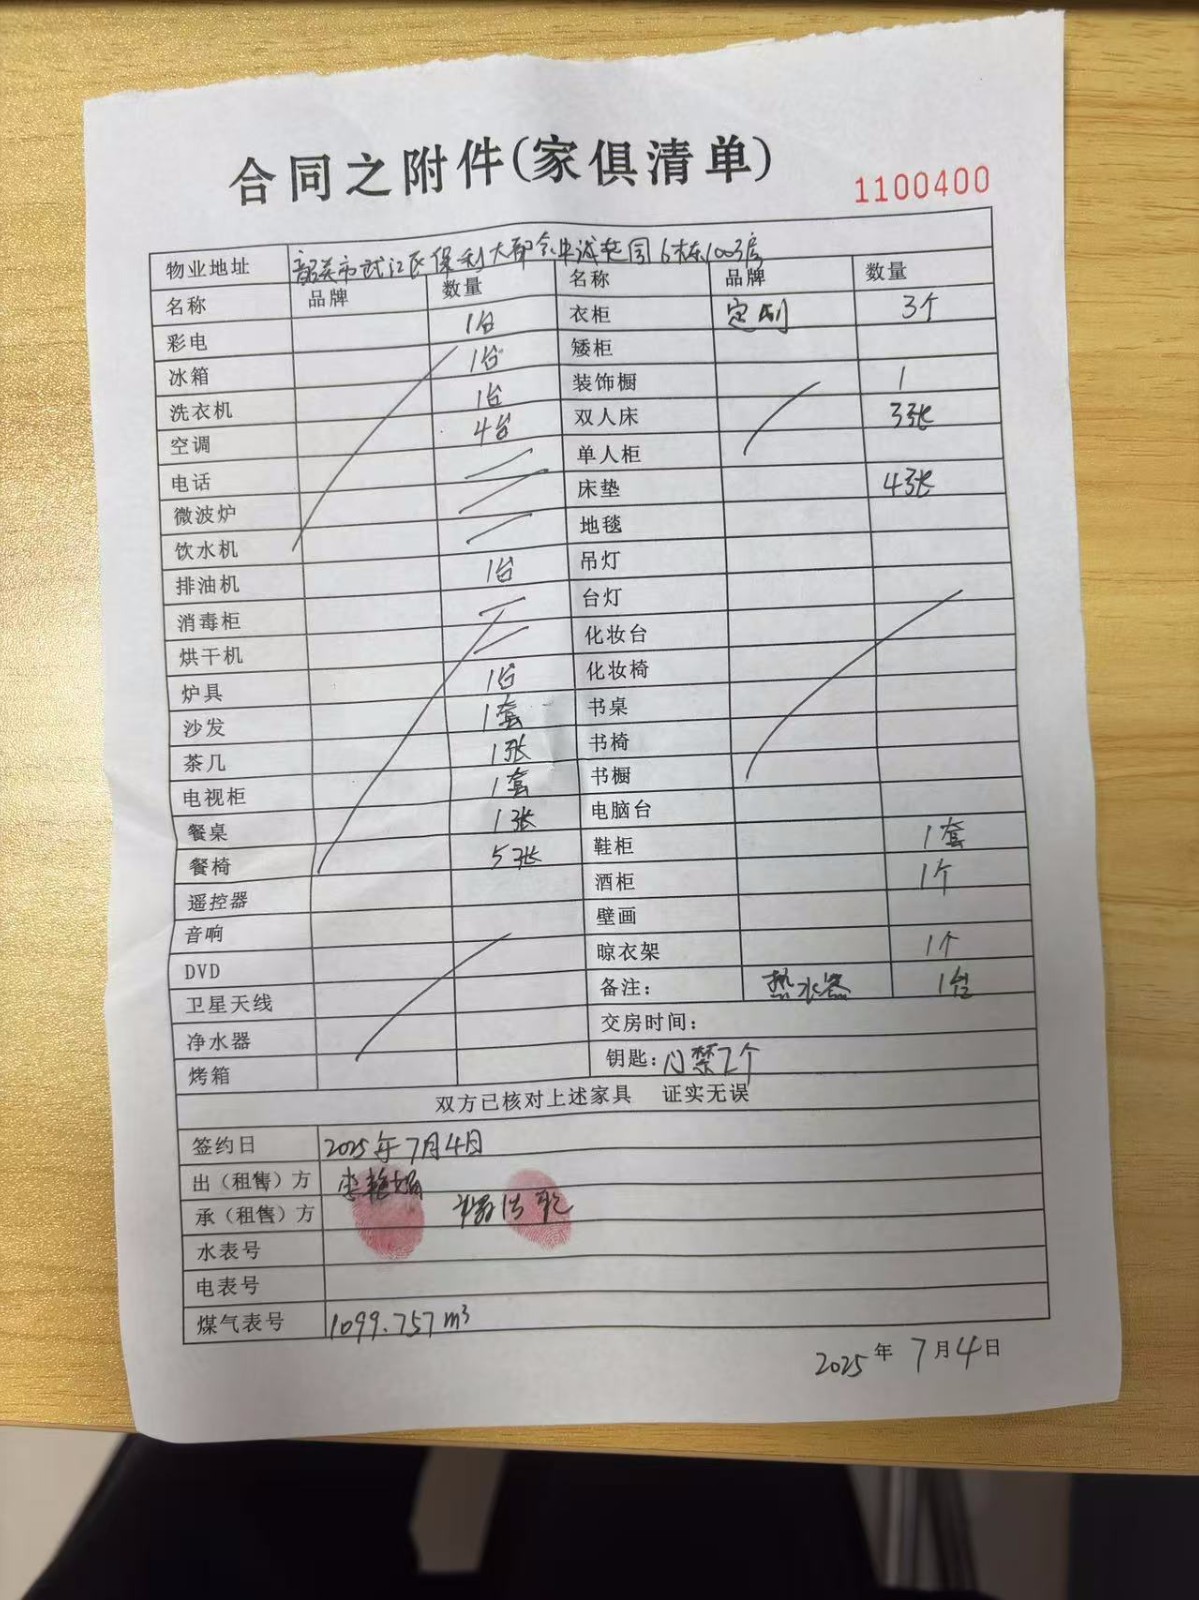 合同之附件(家俱清单)
1100400
物业地址 韶关市武江区保利大都会忠诚苑园6栋1003房
名称 品牌 数量 名称 品牌 数量
彩电 1台 衣柜 定制 3个
冰箱 1台 矮柜
洗衣机 1台 装饰橱 1
空调 4台 双人床 3张
电话 单人柜
微波炉 床垫 4张
饮水机 地毯
排油机 1台 吊灯
消毒柜 台灯
烘干机 化妆台
炉具 1台 化妆椅
沙发 1套 书桌
茶几 1张 书椅
电视柜 1套 书橱
餐桌 1张 电脑台
餐椅 5张 鞋柜 1套
遥控器 酒柜 1个
音响 壁画
DVD 晾衣架 1个
卫星天线 备注: 热水器 1台
净水器 交房时间:
烤箱 钥匙: 门禁2个
双方已核对上述家具 证实无误
签约日 2025年7月4日
出(租售)方
承(租售)方
水表号
电表号
煤气表号 1099.757m³
2025年7月4日